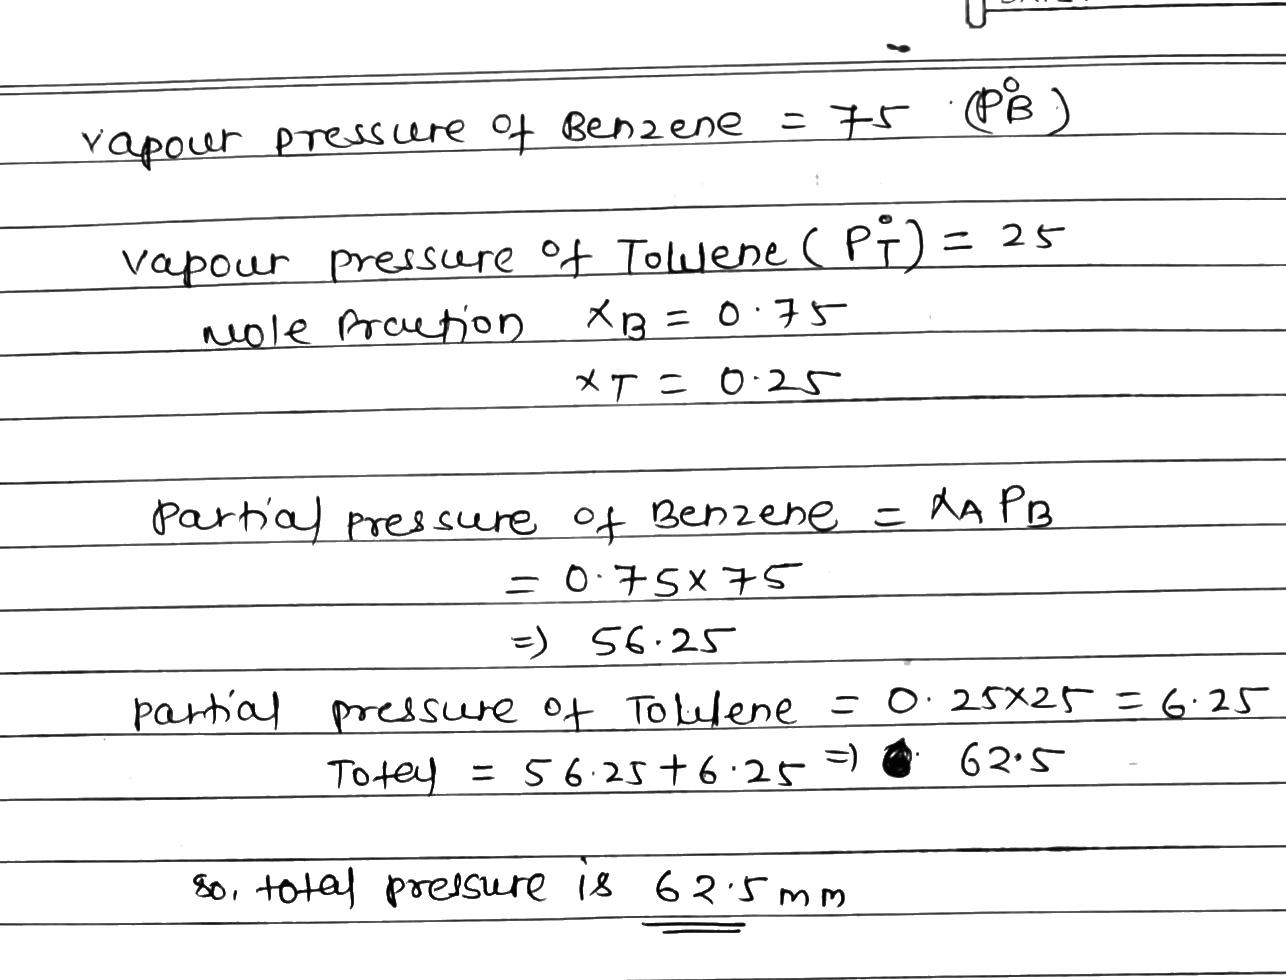 vapour pressure of Benzene = 75 (P°B)
vapour pressure of Toluene (P°T) = 25
mole fraction xB = 0.75
xT = 0.25
Partial pressure of Benzene = xA PB
= 0.75x75
=) 56.25
partial pressure of Toluene = 0.25x25 = 6.25
Total = 56.25+6.25 =) 62.5
so, total pressure is 62.5 mm